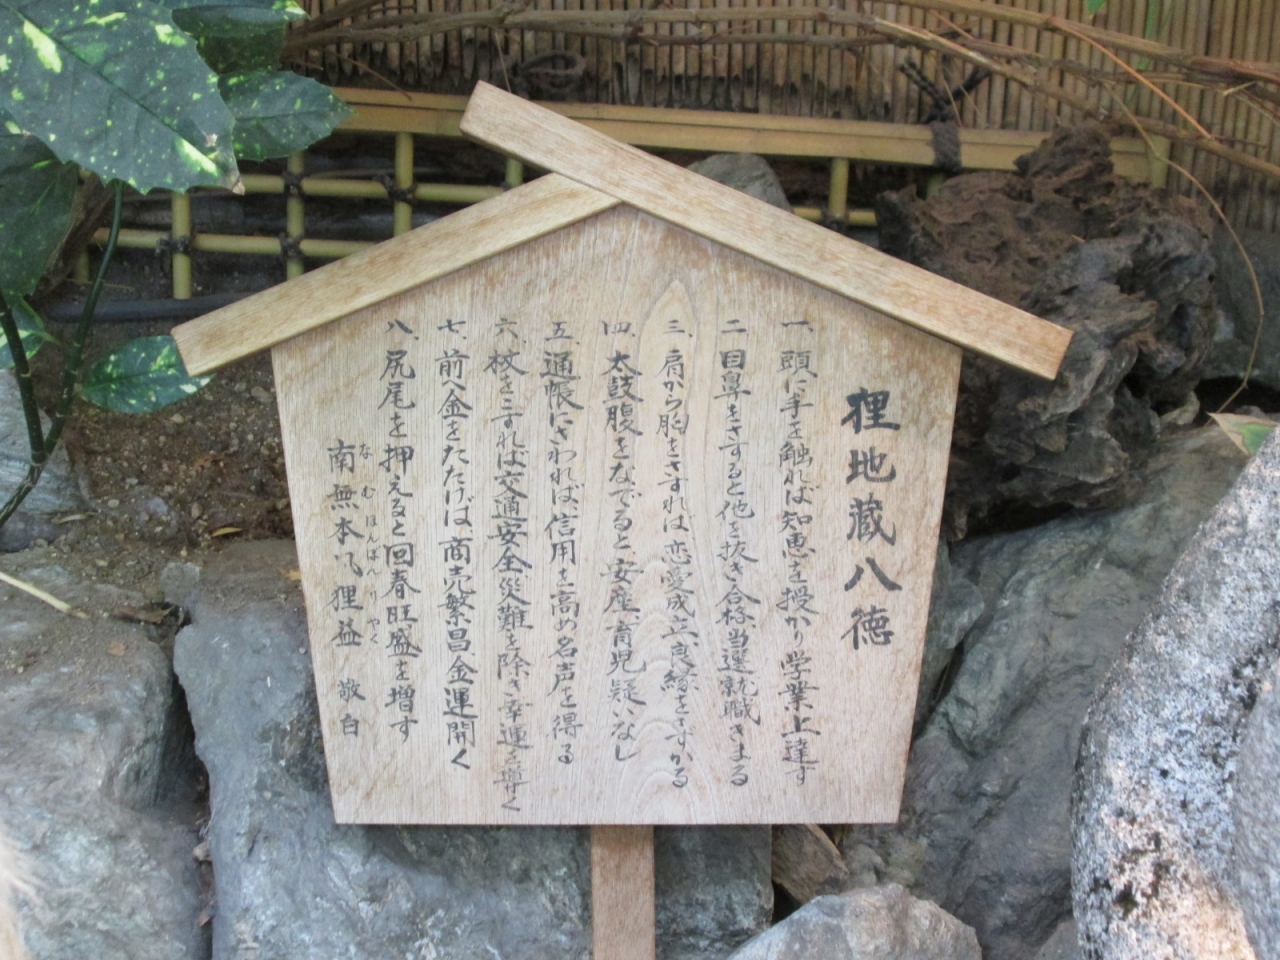 狸地蔵八徳
一、頭に手を触れば知恵を授かり学業上達す
二、目鼻をさすると他を抜き合格当選就職きまる
三、肩から胸をさすれば恋愛成立良縁をさずかる
四、太鼓腹をなでると安産、育児疑いなし
五、通帳にさわれば、信用を高め名声を得る
六、杖をこすれば交通安全災難を除き幸運を導く
七、前へ金をたたけば、商売繁昌金運開く
八、尻尾を押えると回春旺盛を増す
南無本 狸益 敬白
なむほんぽんりやく